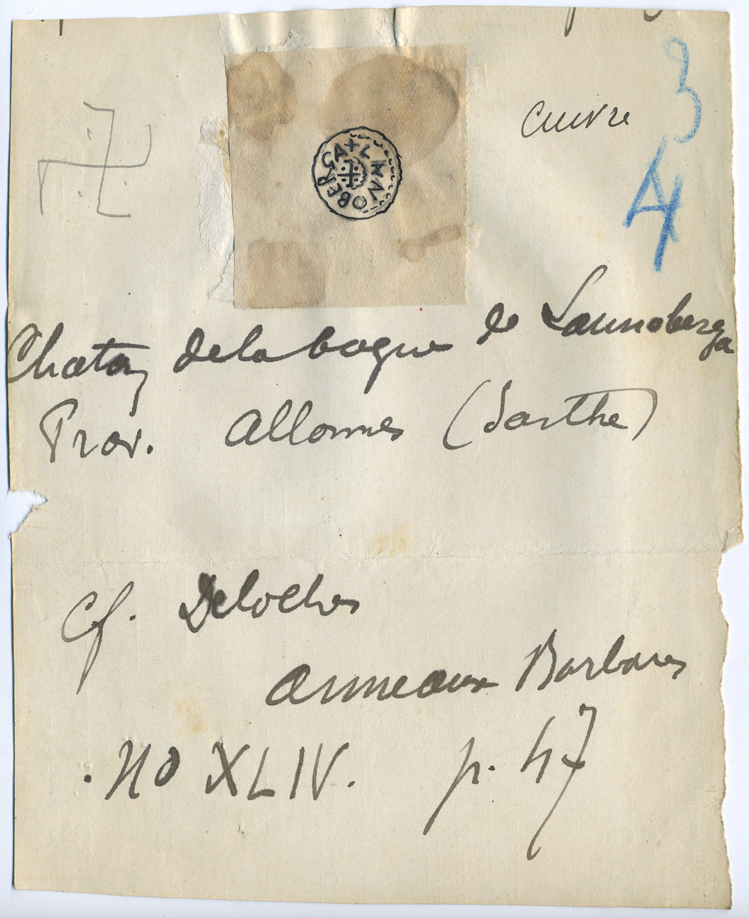 cuivre
3
4
Chaton de la bague de Launoberga
Prov. Allonnes (Sarthe)
Cf. Deloche
Anneaux Barbares
No XLIV. p. 47